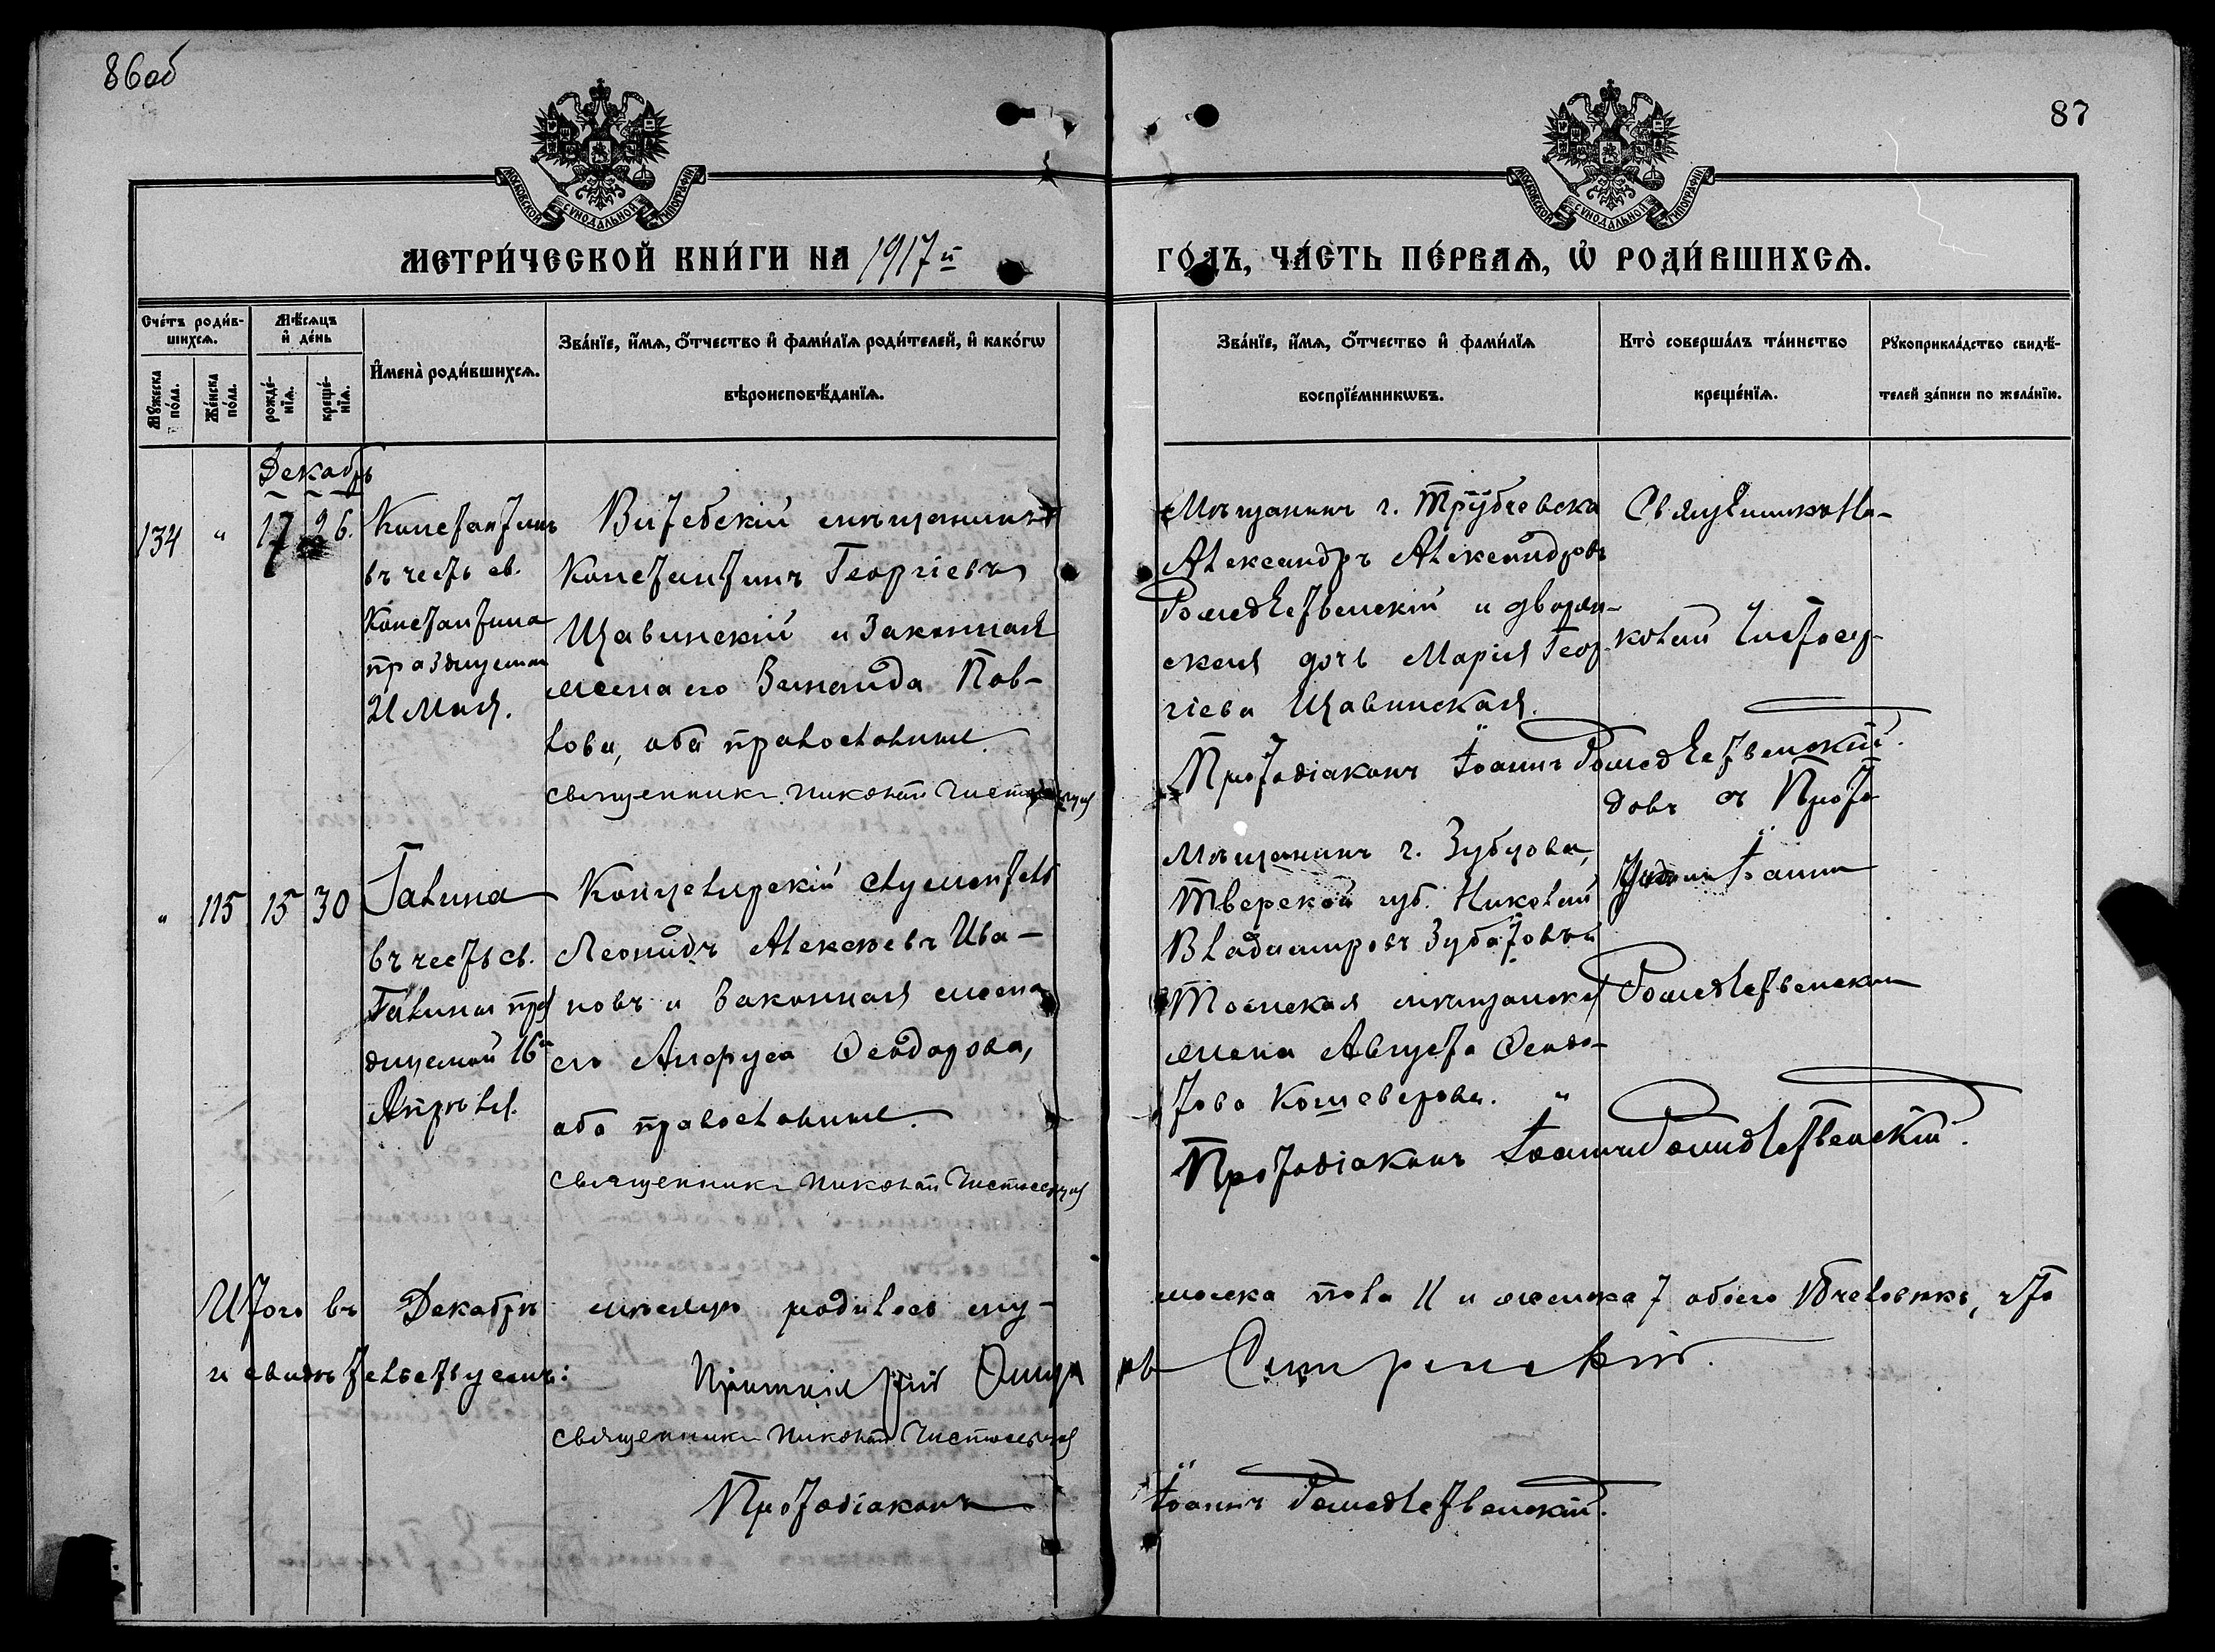 86об
87
МОСКОВСКОЙ СѴНОДАЛЬНОЙ ТИПОГРАФІИ
МОСКОВСКОЙ СѴНОДАЛЬНОЙ ТИПОГРАФІИ
МЕТРИ́ЧЕСКОЙ КНИ́ГИ НА 1917й
ГО́ДЪ, ЧА́СТЬ ПЕ́РВАѦ, Ѡ҆ РОДИ́ВШИХСѦ.
Сче́тъ роди́в-
шихсѧ.
Мꙋ́жеска
по́ла.
Же́нска
по́ла.
Мѣ́сѧцъ
и҆ де́нь
рожде́-
нїѧ.
креще́-
нїѧ.
И҆мена̀ роди́вшихсѧ.
Зва́нїе, и҆́мѧ, ѻ҆́тчество и҆ фами́лїѧ роди́телей, и҆ како́гѡ
вѣроисповѣ́данїѧ.
Зва́нїе, и҆́мѧ, ѻ҆́тчество и҆ фами́лїѧ
воспрїе́мникѡвъ.
Кто̀ соверша́лъ та́инство
креще́нїѧ.
Рꙋкоприкла́дство свидѣ́-
телей за́писи по жела́нїю.
Декабрь
134 " 17 26.
Константинъ
въ честь св.
Константина
празднуемаго
21 Мая.
Витебскій мѣщанинъ
Константинъ Георгіевъ
Щавинскій и законная
жена его Зинаида Пав-
лова, оба православные.
Священникъ Николай Чистосердовъ
Мѣщанинъ г. Трубчевска
Александръ Александровъ
Рождественскій и дворян-
ская дочь Марія Геор-
гіева Щавинская.
Протодіаконъ Іоаннъ Рождественскій.
Священникъ Ни-
колай Чистосер-
довъ съ Прото
Іоанном
Рождественским
" 115 15 30
Галина
въ честь св.
Галины праз
днуемой 16й
Апрѣля.
Канцелярскій служитель
Леонидъ Алексѣевъ Ива-
новъ и законная жена
его Анфуса Ѳеодорова,
оба православные.
Священникъ Николай Чистосердовъ
Мѣщанинъ г. Зубцова,
Тверской губ. Николай
Владимировъ
Томская мѣщанская
жена Августа
Кошеварова. "
Протодіаконъ Іоаннъ Рождественскій.
Итого въ Декабрѣ мѣсяцѣ родилось му-
жеска пола 11 и женска 7 обоего 18 человѣкъ, что
и свидѣтельствуемъ:
Протоіерей
Сретенскій.
Священникъ Николай Чистосердовъ
Протодіаконъ Іоаннъ Рождественскій.